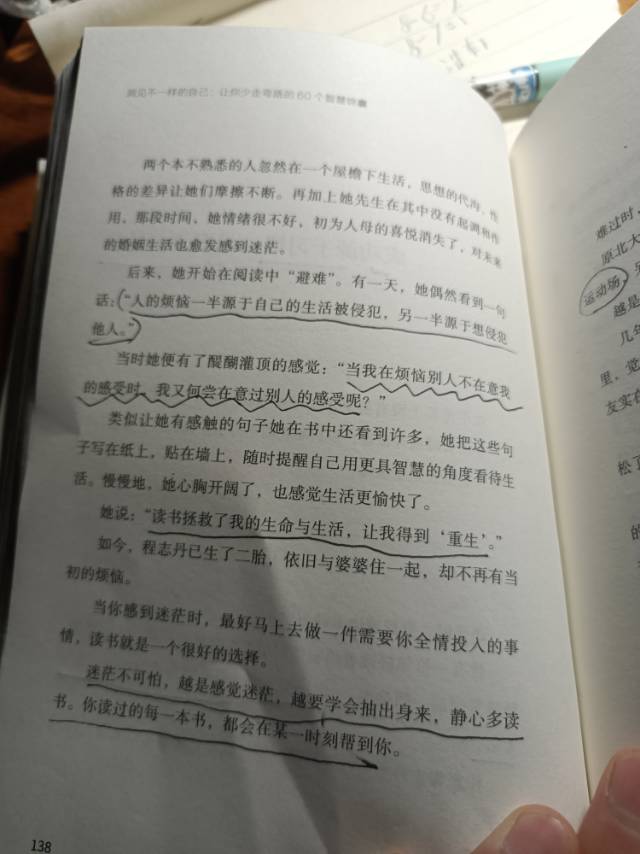 遇见不一样的自己：让你少走弯路的60个智慧锦囊
两个本不熟悉的人忽然在一个屋檐下生活，思想的代沟、性
格的差异让她们摩擦不断。再加上她先生在其中没有起调和作
用，那段时间，她情绪很不好，初为人母的喜悦消失了，对未来
的婚姻生活也愈发感到迷茫。
后来，她开始在阅读中“避难”。有一天，她偶然看到一句
话：“人的烦恼一半源于自己的生活被侵犯，另一半源于想侵犯
他人。”
当时她便有了醍醐灌顶的感觉：“当我在烦恼别人不在意我
的感受时，我又何尝在意过别人的感受呢？”
类似让她有感触的句子她在书中还看到许多，她把这些句
子写在纸上，贴在墙上，随时提醒自己用更具智慧的角度看待生
活。慢慢地，她心胸开阔了，也感觉生活更愉快了。
她说：“读书拯救了我的生命与生活，让我得到‘重生’。”
如今，程志丹已生了二胎，依旧与婆婆住一起，却不再有当
初的烦恼。
当你感到迷茫时，最好马上去做一件需要你全情投入的事
情，读书就是一个很好的选择。
迷茫不可怕，越是感觉迷茫，越要学会抽出身来，静心多读
书。你读过的每一本书，都会在某一时刻帮到你。
138
难过时，
原北大
运动场，
越是
几年
里，觉
友实在
松了
的